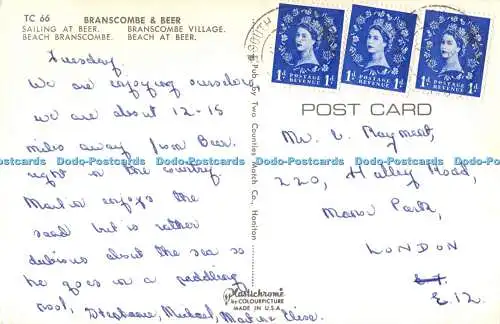 TC 66 BRANSCOMBE & BEER
SAILING AT BEER. BRANSCOMBE VILLAGE.
BEACH BRANSCOMBE. BEACH AT BEER.
Tuesday.
We are enjoying ourselves
we are about 12-15
miles away from Beer.
right in the country.
Martin enjoys the
sand but is rather
dubious about the sea so
he goes in a paddling
pool, Stephanie, Michael, Martin & Elise.
Pub. by Two Counties Match Co., Honiton
Plastichrome
by COLOURPICTURE
MADE IN U.S.A.
1d POSTAGE REVENUE 1d
1d POSTAGE REVENUE 1d
1d POSTAGE REVENUE 1d
POST CARD
Mr. V. Rayment,
220, Halley Road,
Manor Park,
LONDON
E.12.
Dodo-Postcards Dodo-Postcards Dodo-Postcards Dodo-Postcards